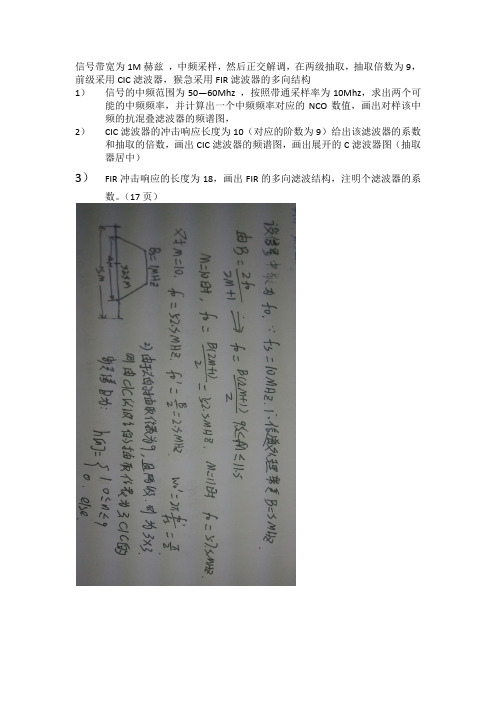 信号带宽为1M赫兹 ，中频采样，然后正交解调，在两级抽取，抽取倍数为9，
前级采用CIC滤波器，猴急采用FIR滤波器的多向结构
1） 信号的中频范围为50—60Mhz ，按照带通采样率为10Mhz，求出两个可
能的中频频率，并计算出一个中频频率对应的 NCO 数值，画出对样该中
频的抗混叠滤波器的频谱图，
2） CIC滤波器的冲击响应长度为10（对应的阶数为9）给出该滤波器的系数
和抽取的倍数，画出CIC滤波器的频谱图，画出展开的C滤波器图（抽取
器居中）
3） FIR冲击响应的长度为18，画出FIR的多向滤波结构，注明个滤波器的系
数。（17页）
设信号中心为f0, ∵ fs=10MHz ∴ B=5MHz.
由B = 2f0/(2M+1) ⟹ f0 = B(2M+1)/2 9.5<M<11.5
M=10时, f0 = B(2M+1)/2 = 52.5MHz. M=11时 f0=57.5MHz
对于M=10. f0=52.5MHz. f0' = B/2 = 2.5MHz. w0' = 2π f0'/fs = π/2
B=1MHz
52.5M
2) 由于总的抽取倍数为9, 且两级. 则为3×3
h[n] = { 1 0≤n≤9
0. else